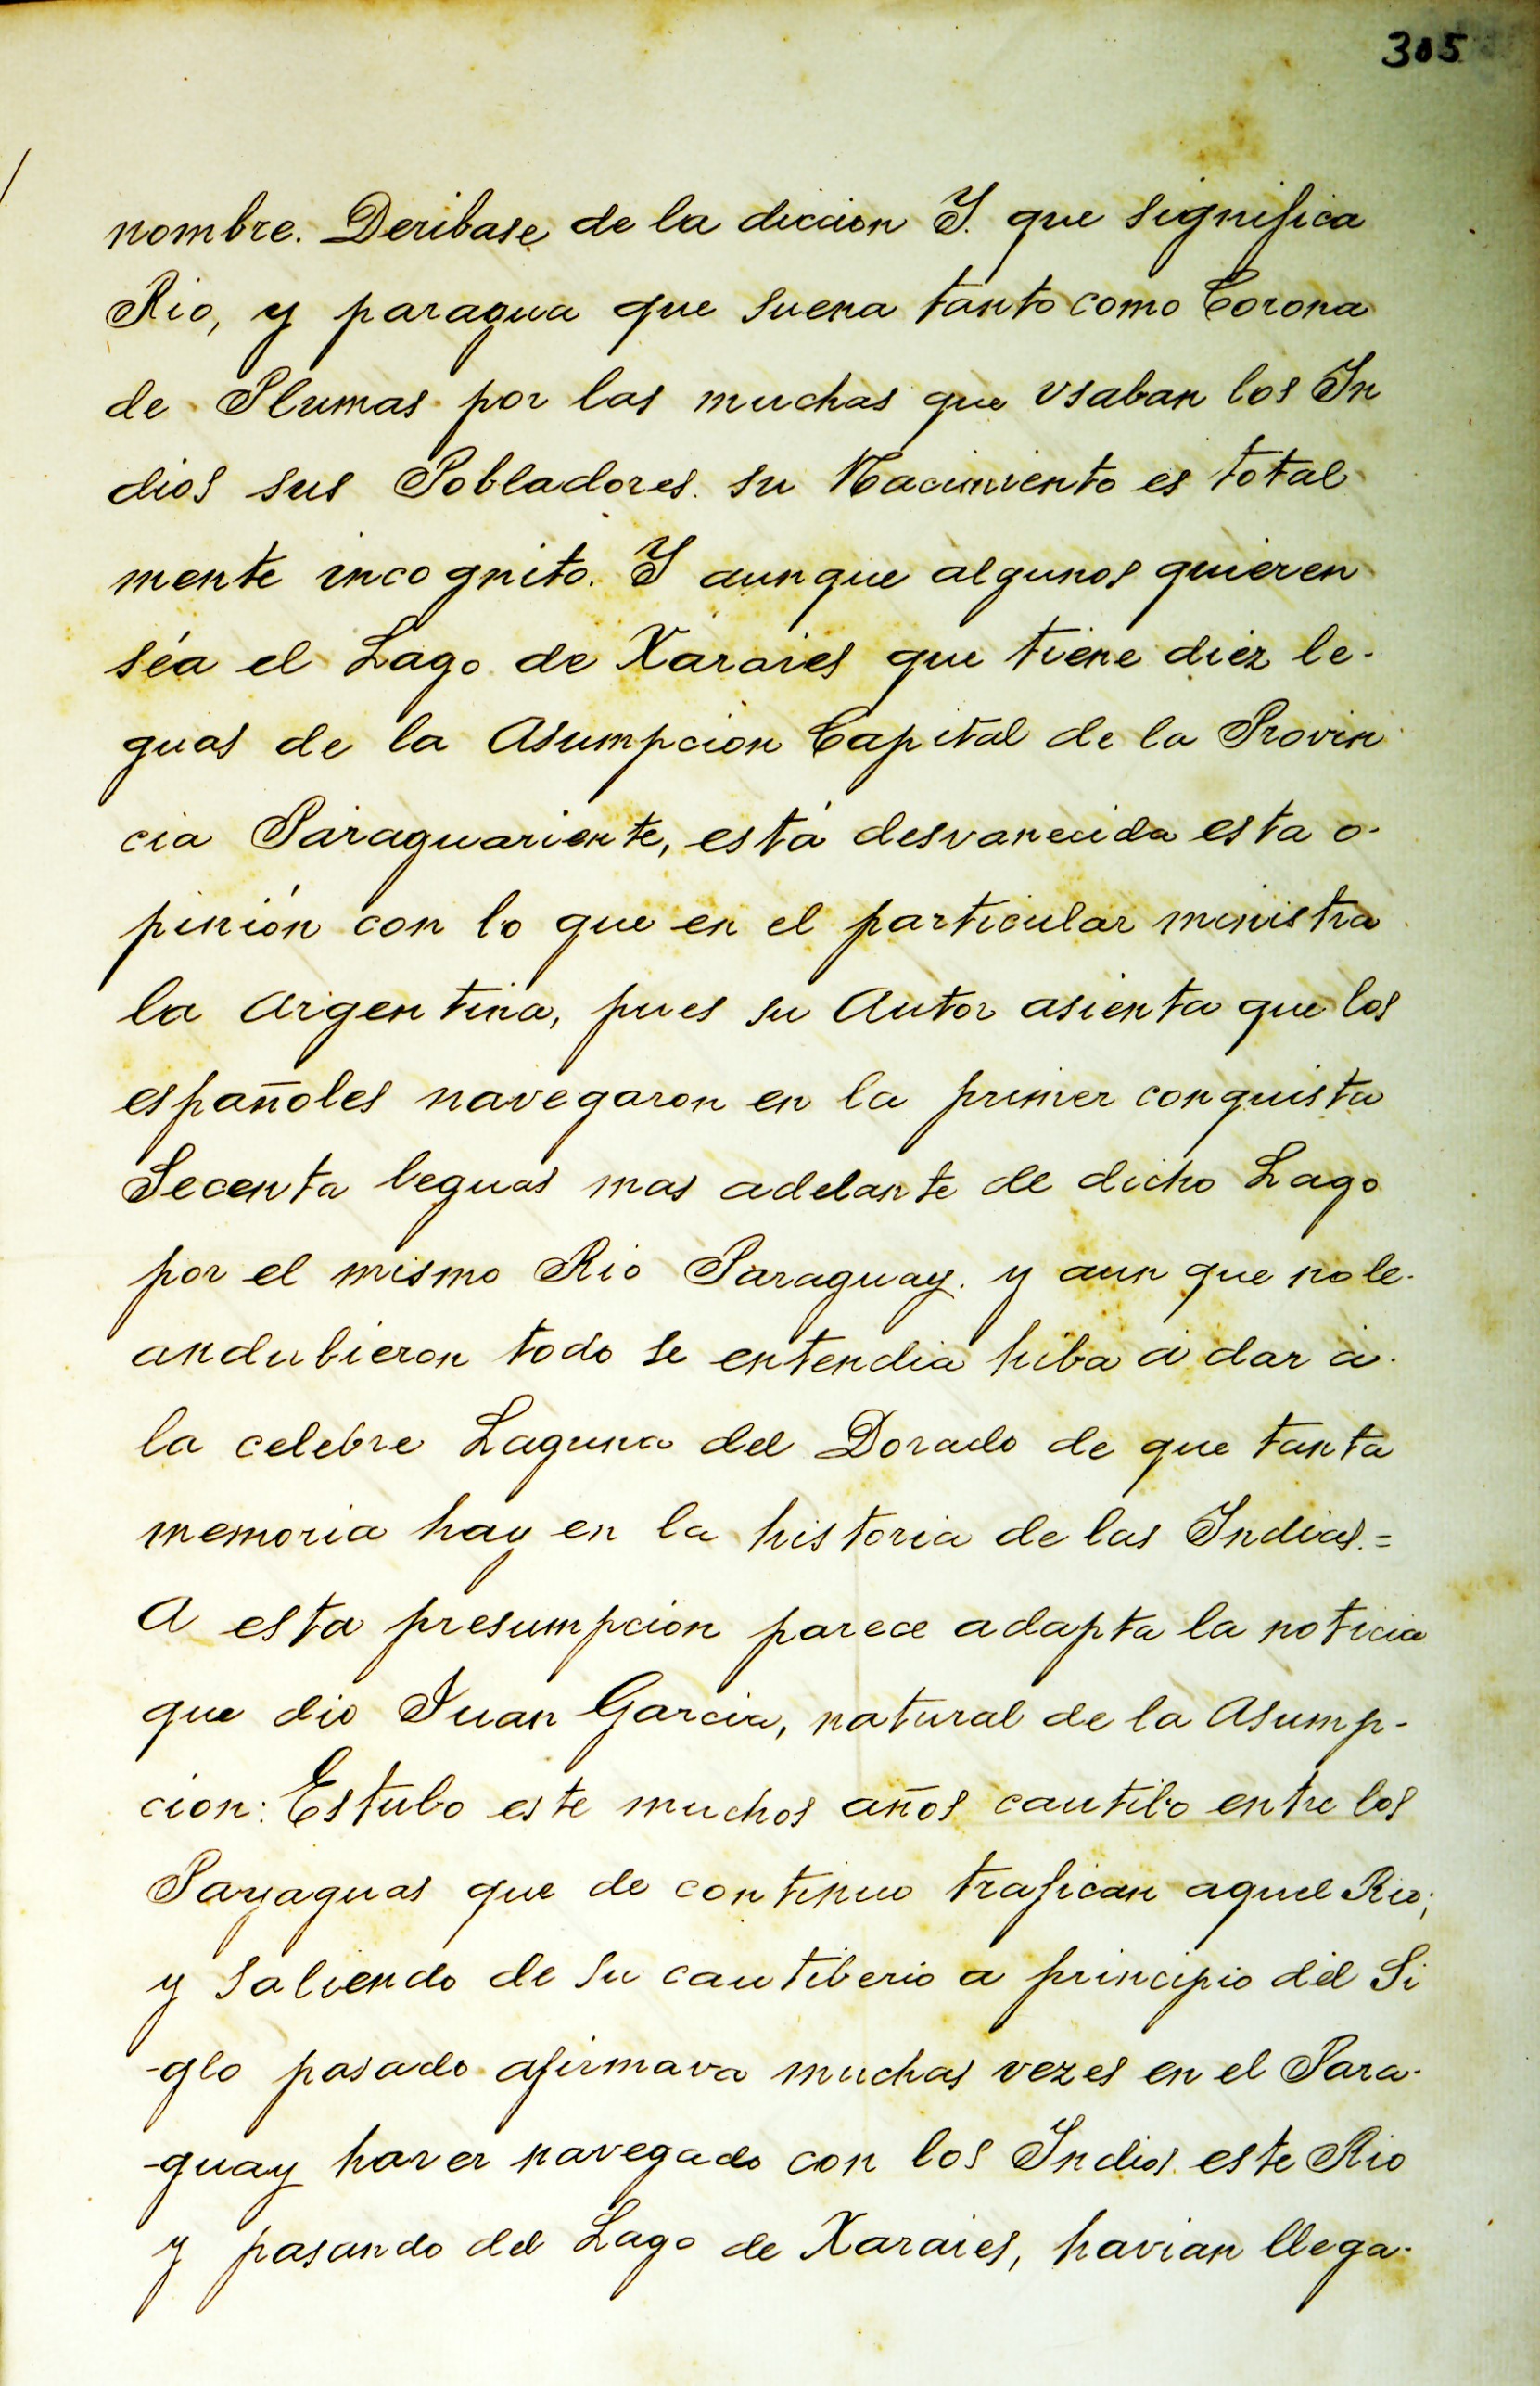 305
nombre. Deribase de la diccion Y. que significa
Rio, y paragua que suena tanto como Corona
de Plumas por las muchas que vsaban los In
dios sus Pobladores. su Nacimiento es total
mente incognito. Y aunque algunos quieren
séa el Lago de Xaraies que tiene diez le-
guas de la Asumpcion Capital de la Provin
cia Paraguariente, está desvanecida esta o-
pinión con lo que en el particular ministra
la Argentina, pues su Autor asienta que los
españoles navegaron en la primer conquista
Secenta leguas mas adelante de dicho Lago
por el mismo Rio Paraguay. y aun que no le-
andubieron todo se entendia hiba á dar á.
la celebre Laguna del Dorado de que tanta
memoria hay en la historia de las Indias.=
A esta presumpcion parece adapta la noticia
que dio Juan Garcia, natural de la Asump-
cion: Estubo este muchos años cautibo entre los
Payaguas que de continuo trafican aquel Rio;
y saliendo de su cautiberio a principio del Si
-glo pasado afirmava muchas vezes en el Para-
-guay haver navegado con los Indios este Rio
y pasando del Lago de Xaraies, havian llega-